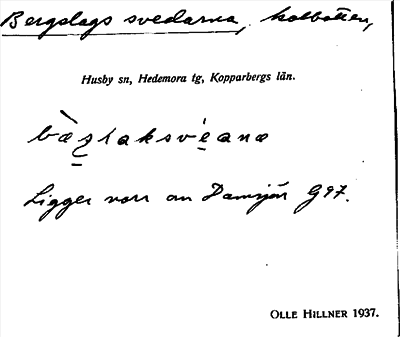 Bergslags svedarna, kolbotten,
Husby sn, Hedemora tg, Kopparbergs län.
Ligger norr om Damsjön G97.
OLLE HILLNER 1937.